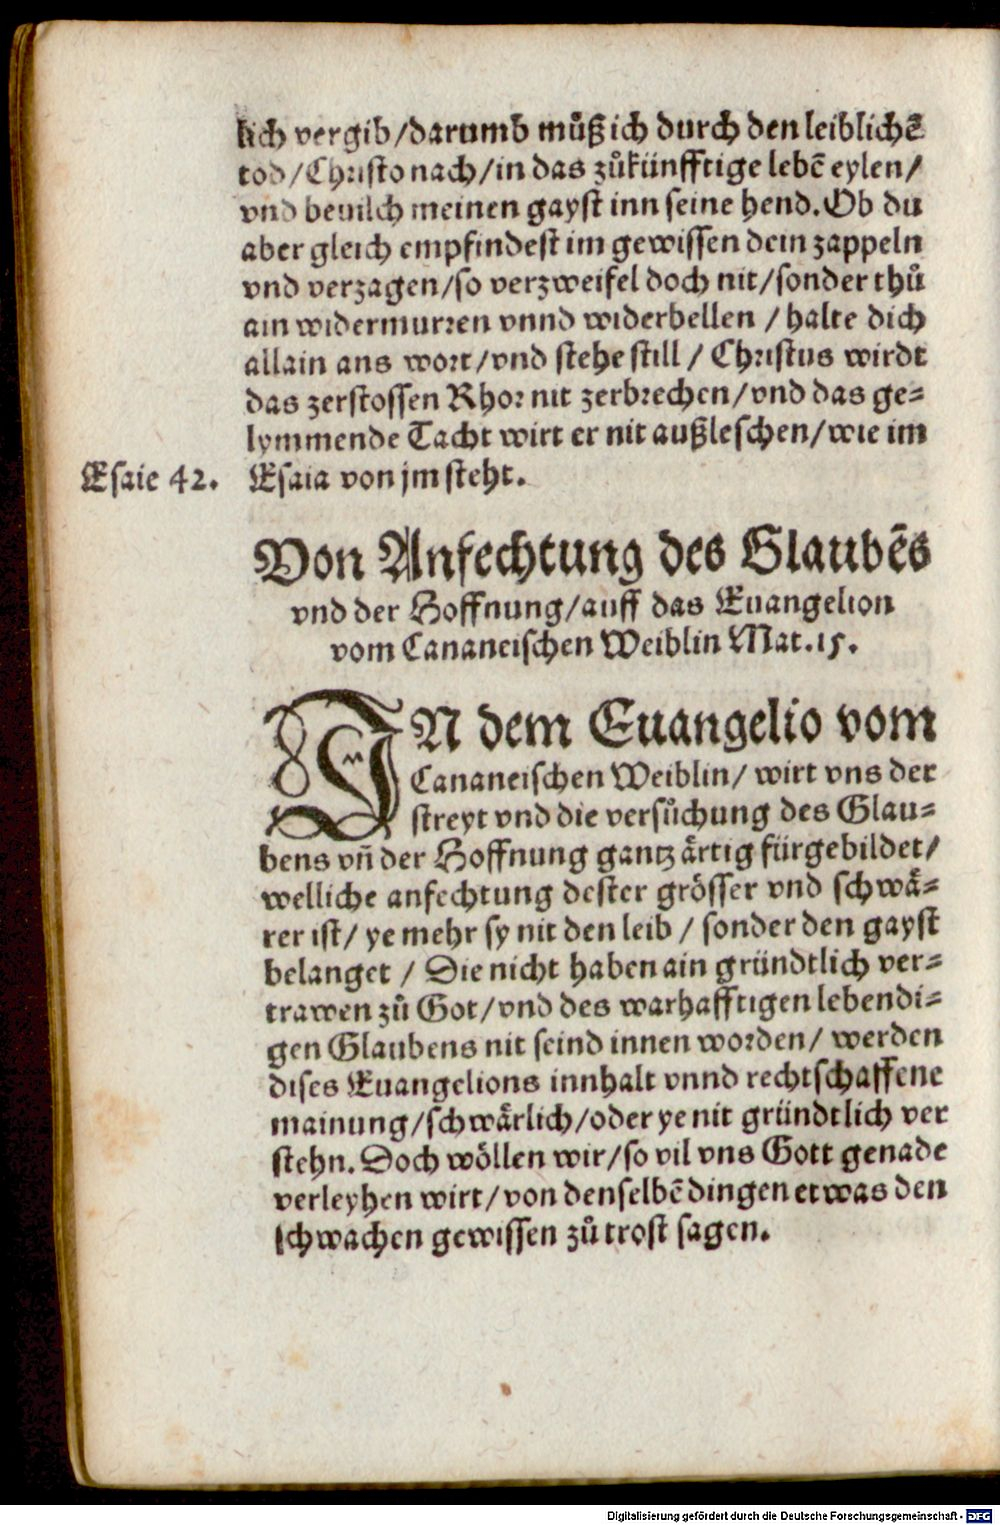 lich vergib/darumb můß ich durch den leiblichē
tod/Christo nach/in das zůkünfftige lebē eylen/
vnd beuilch meinen gayst inn seine hend. Ob du
aber gleich empfindest im gewissen dein zappeln
vnd verzagen/so verzweifel doch nit/sonder thů
ain widermurren vnnd widerbellen / halte dich
allain ans wort/vnd stehe still / Christus wirdt
das zerstossen Rhor nit zerbrechen/vnd das ge-
lymmende Tacht wirt er nit außleschen/wie im
Esaie 42. Esaia von jm steht.
Von Anfechtung des Glaubēs
vnd der Hoffnung/auff das Euangelion
vom Cananeischen Weiblin Mat.15.
IN dem Euangelio vom
Cananeischen Weiblin/ wirt vns der
streyt vnd die versůchung des Glau-
bens vñ der Hoffnung gantz ärtig fürgebildet/
welliche anfechtung dester grösser vnd schwä-
rer ist/ ye mehr sy nit den leib / sonder den gayst
belanget / Die nicht haben ain gründtlich ver-
trawen zů Got/vnd des warhafftigen lebendi-
gen Glaubens nit seind innen worden/ werden
dises Euangelions innhalt vnnd rechtschaffene
mainung/schwärlich/oder ye nit gründtlich ver
stehn. Doch wöllen wir/so vil vns Gott genade
verleyhen wirt/von denselbē dingen etwas den
schwachen gewissen zů trost sagen.
Digitalisierung gefördert durch die Deutsche Forschungsgemeinschaft - DFG